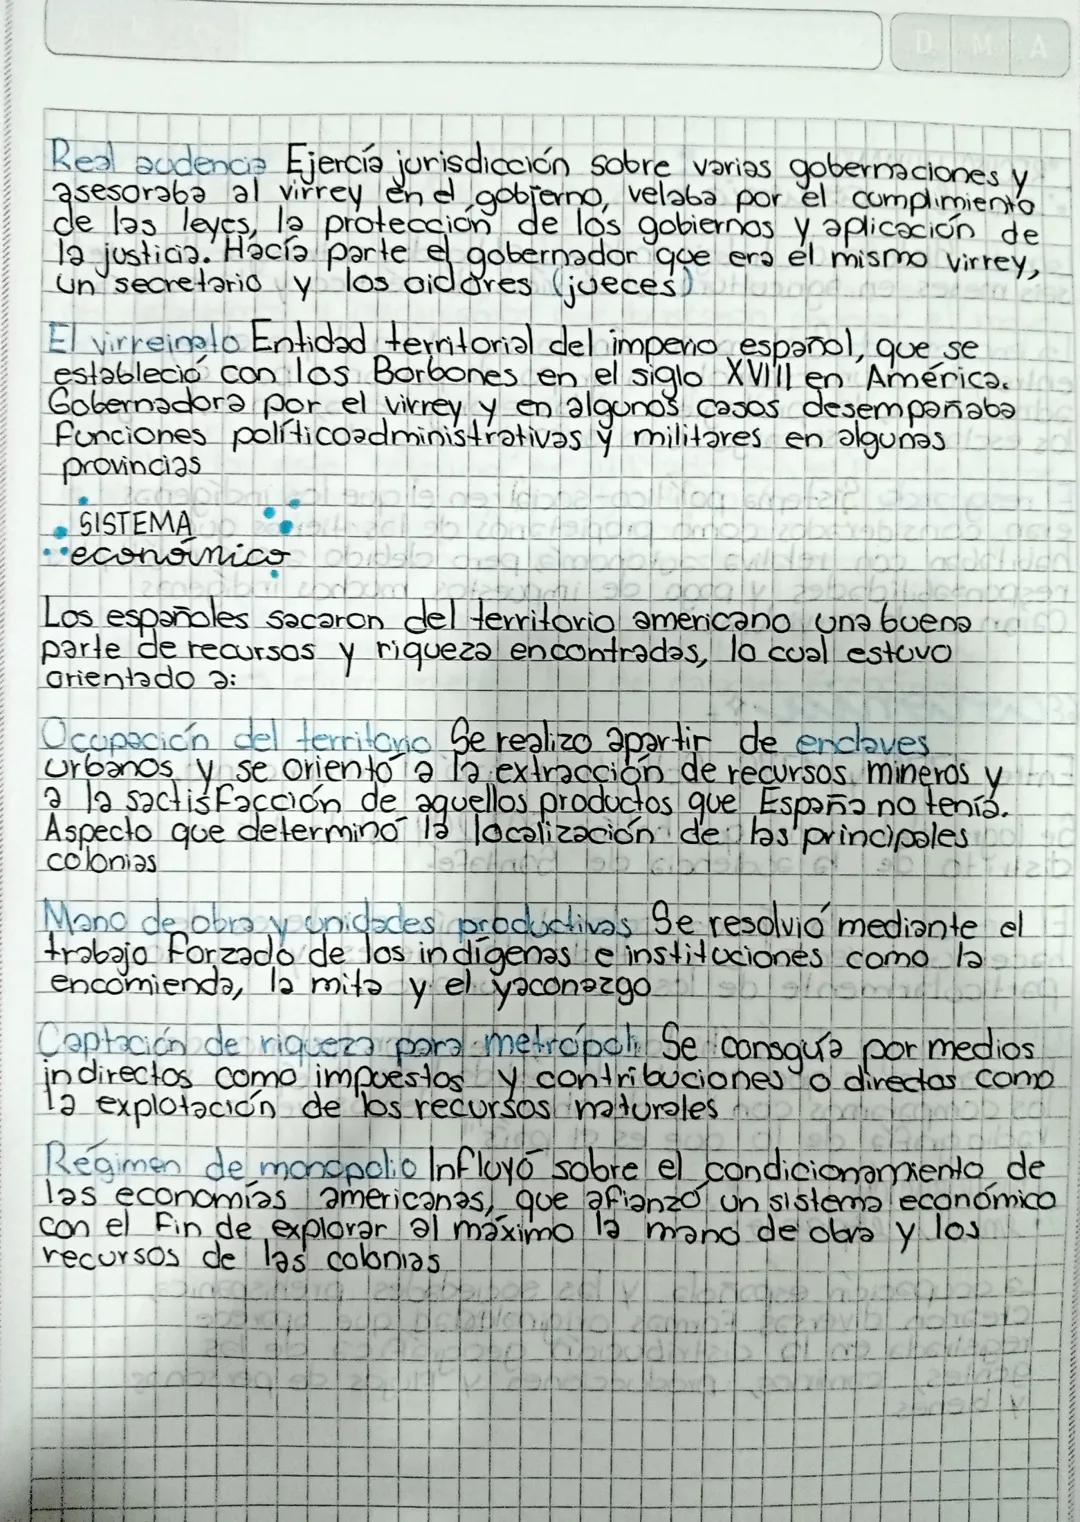 D M A
Real audencia Ejercía jurisdicción sobre varias gobernaciones y
asesoraba al virrey en el gobierno, velaba por el cumplimiento
de las leyes, la protección de los gobiernos y aplicación de
la justicia. Hacía parte el gobernador que era el mismo virrey,
un secretario y los oidores (jueces)
El virreinato Entidad territorial del imperio español, que se
estableció con los Borbones en el siglo XVIII en América.
Gobernadora por el virrey y en algunos casos desempañaba
funciones políticoadministrativas y militares en algunas
provincias
SISTEMA
económico
Los españoles sacaron del territorio americano una buena
parte de recursos y riqueza encontradas, lo cual estuvo
orientado a:
Ocupación del territorio Se realizo apartir de enclaves
urbanos y se orientó a la extracción de recursos mineros y
a la sactisfacción de aquellos productos que España no tenía.
Aspecto que determinó la localización de las principales
colonias
Mano de obra y unidades productivas Se resolvió mediante el
trabajo forzado de los indígenas e instituciones como la
encomienda, la mita y el yaconazgo
Captación de riqueza para metrópoli Se consguía por medios
indirectos como impuestos y contribuciones o directos como
la explotación de los recursos naturales
Régimen de monopolio Influyó sobre el condicionamiento de
las economías americanas, que afianzó un sistema económico
con el fin de explorar al máximo la mano de obra y los
recursos de las colonias